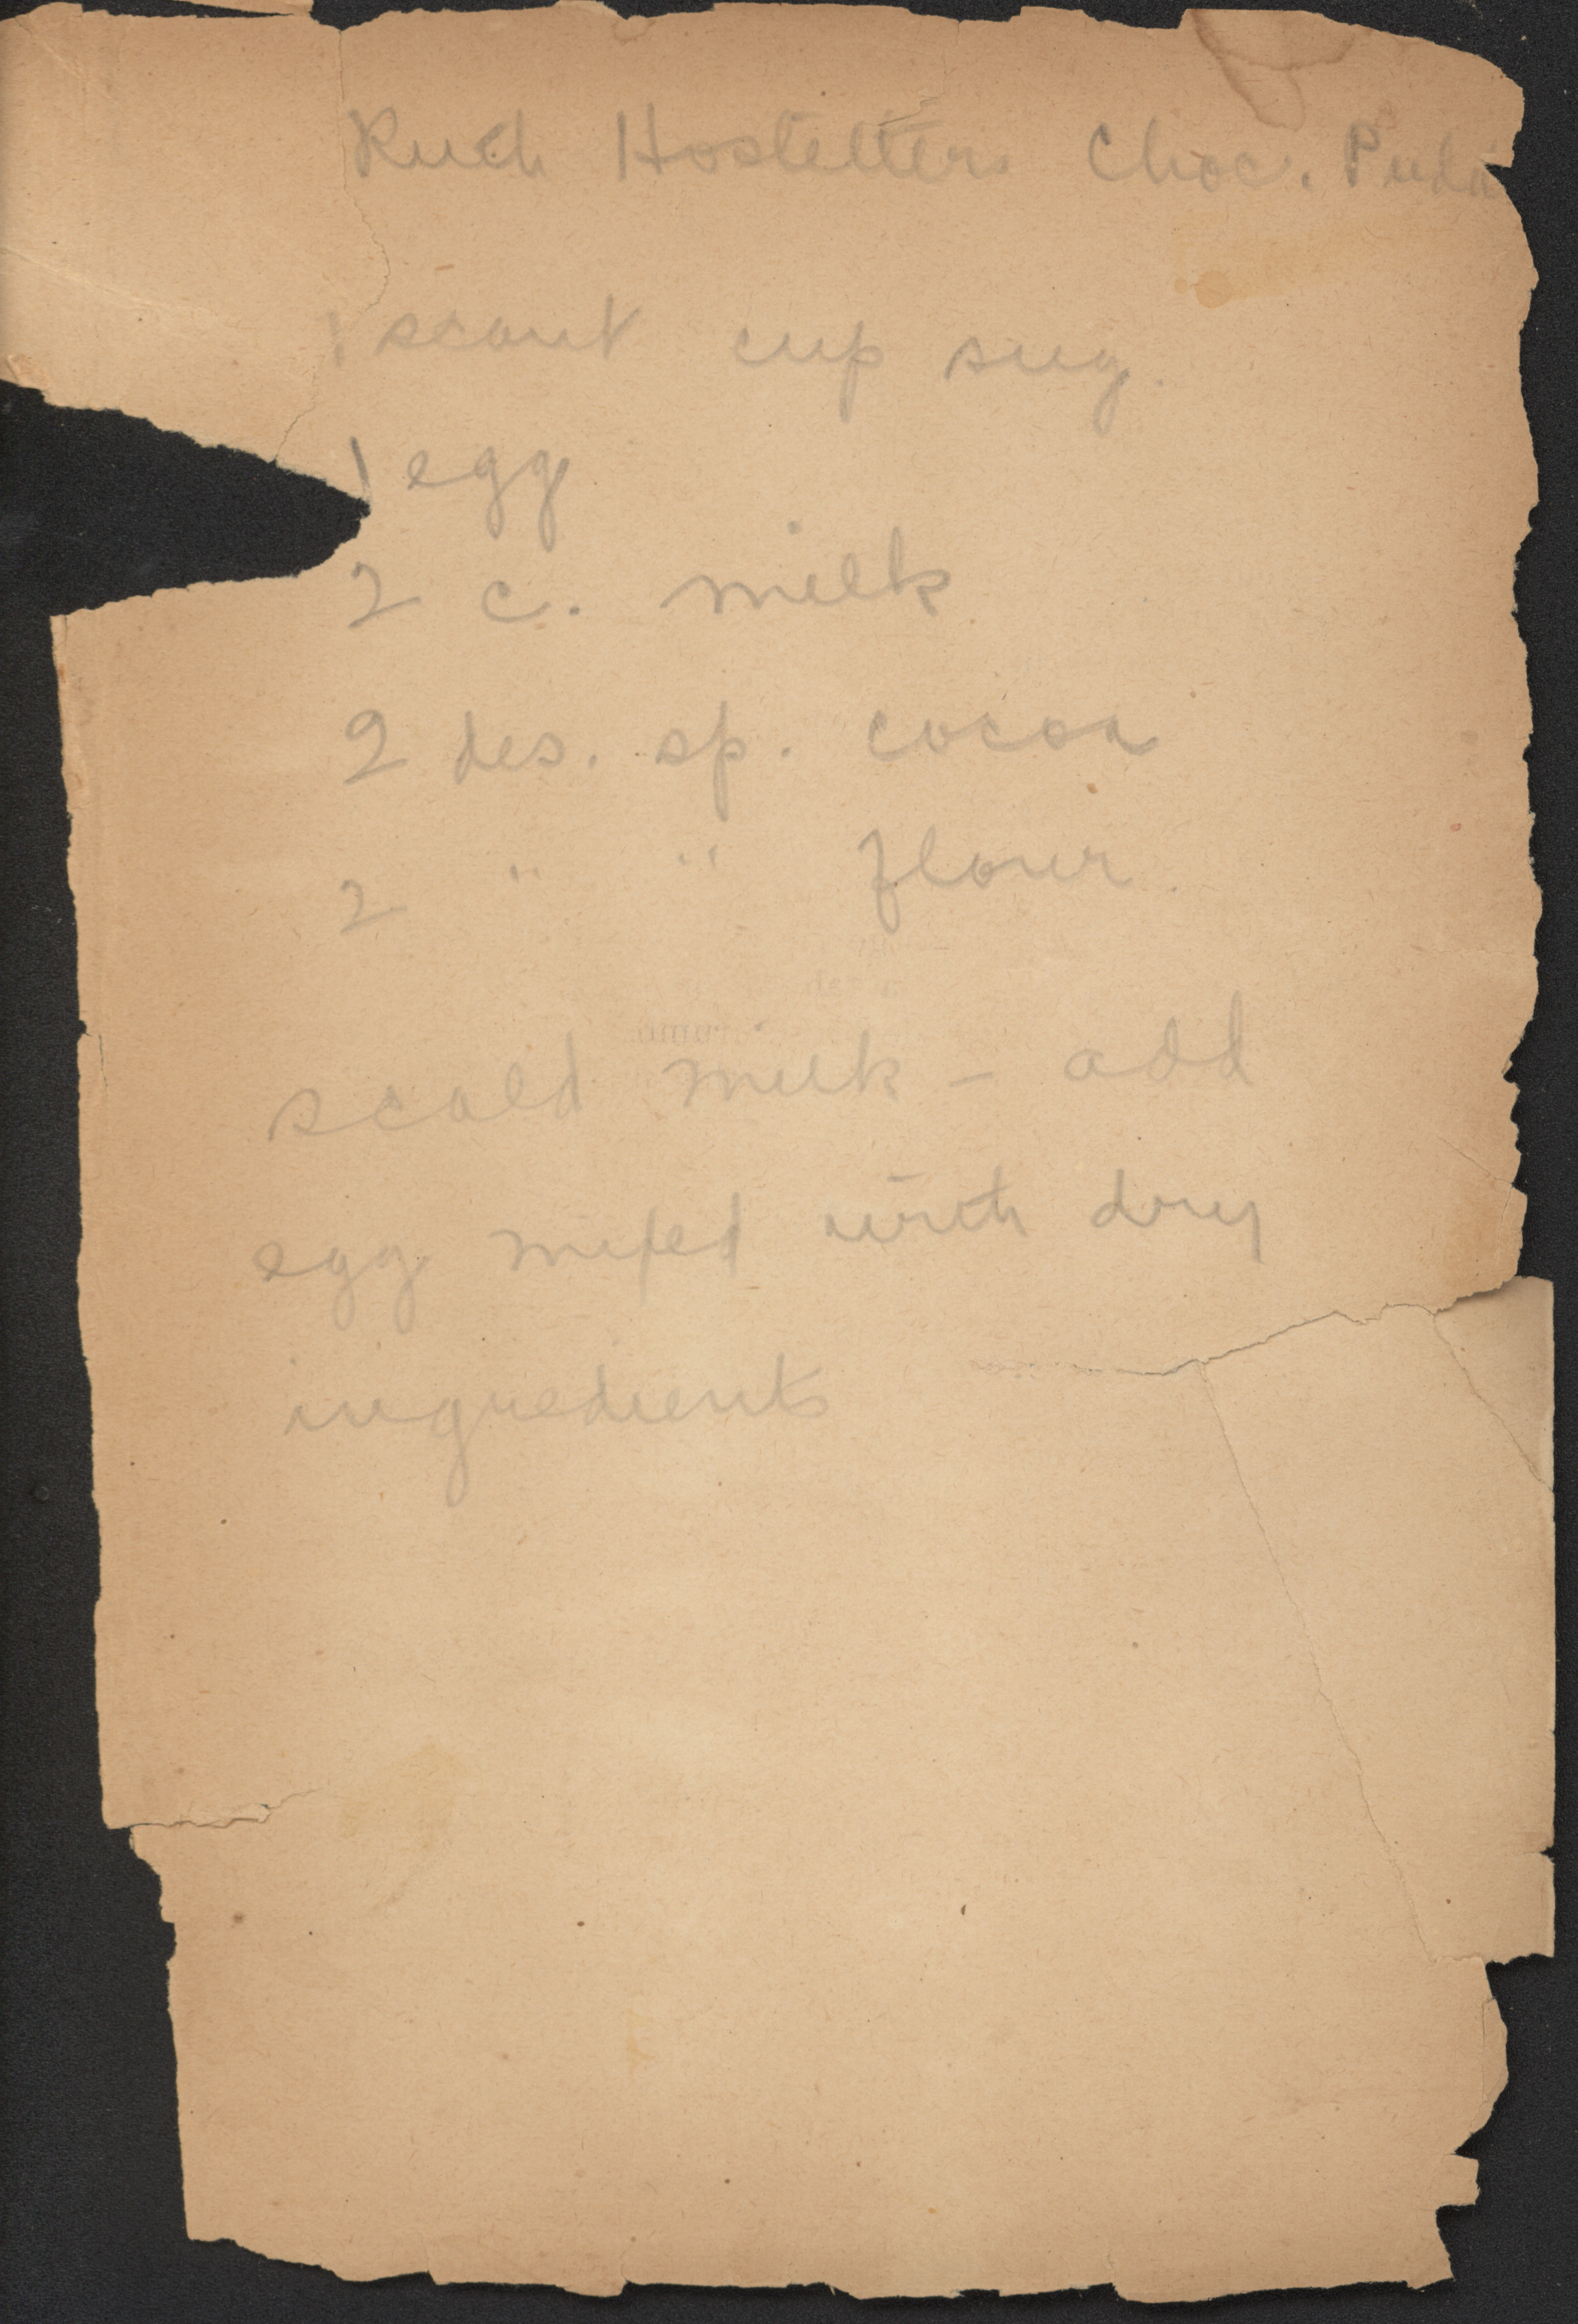 Ruth Hostetters Choc. Pudd
1 scant cup sug.
1 egg
2 c. milk
2 des. sp. cocoa
2 " " flour
scald milk - add
egg mixed with dry
ingredients